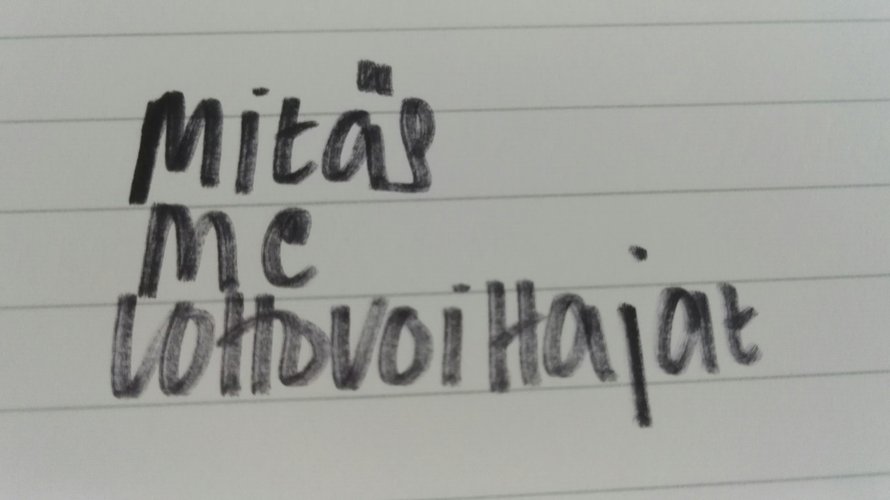 Mitäs
me
lottovoittajat